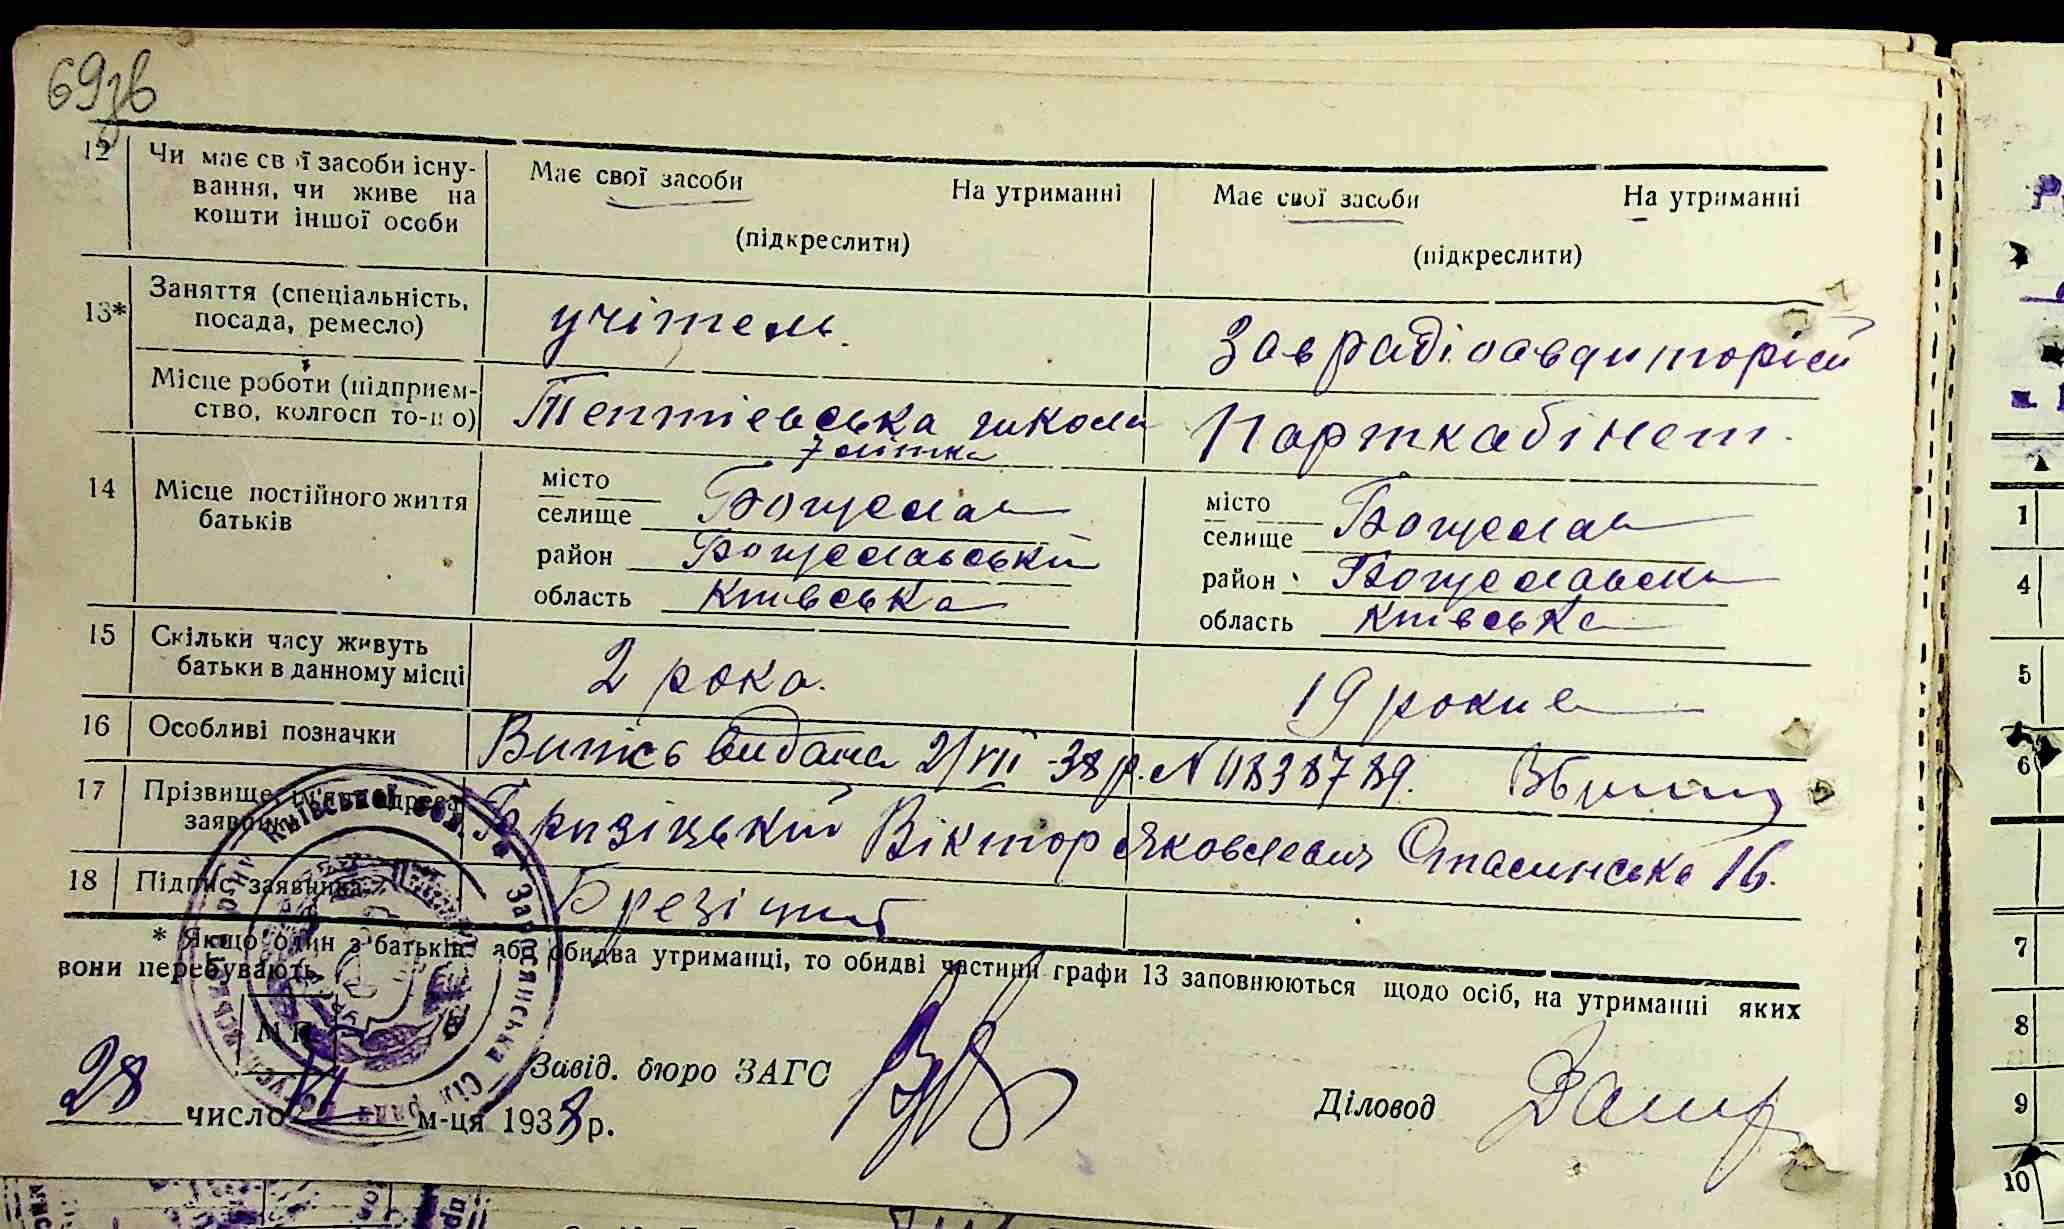 69зв
12 Чи має свої засоби існу- Має свої засоби На утриманні Має свої засоби На утриманні
вання, чи живе на
кошти іншої особи (підкреслити) (підкреслити)
13* Заняття (спеціальність, учітель. Заврадіоавдиторієй
посада, ремесло)
Місце роботи (підприєм- Тептіевська школа Парткабінет.
ство, колгосп то-що) 7 літка
14 Місце постійного життя місто Богуслав місто Богуслав
батьків селище селище
район Богуславський район Богуславски
область Київська область Київська
15 Скільки часу живуть 2 рока. 19 років
батьки в данному місці
16 Особливі позначки Випісь видана 21/VII-38 р. N 4838789.
17 Прізвище, ім'я та адреса Брезіцький Віктор Яковлевич 16.
заявника
18 Підпис заявника Брезіцький
* Якщо один з батьків або обидва утриманці, то обидві частини графи 13 заповнюються щодо осіб, на утриманні яких
вони перебувають.
М П
Завід. бюро ЗАГС
Діловод
28 число м-ця 1938 р.
1
4
5
6
7
8
9
10